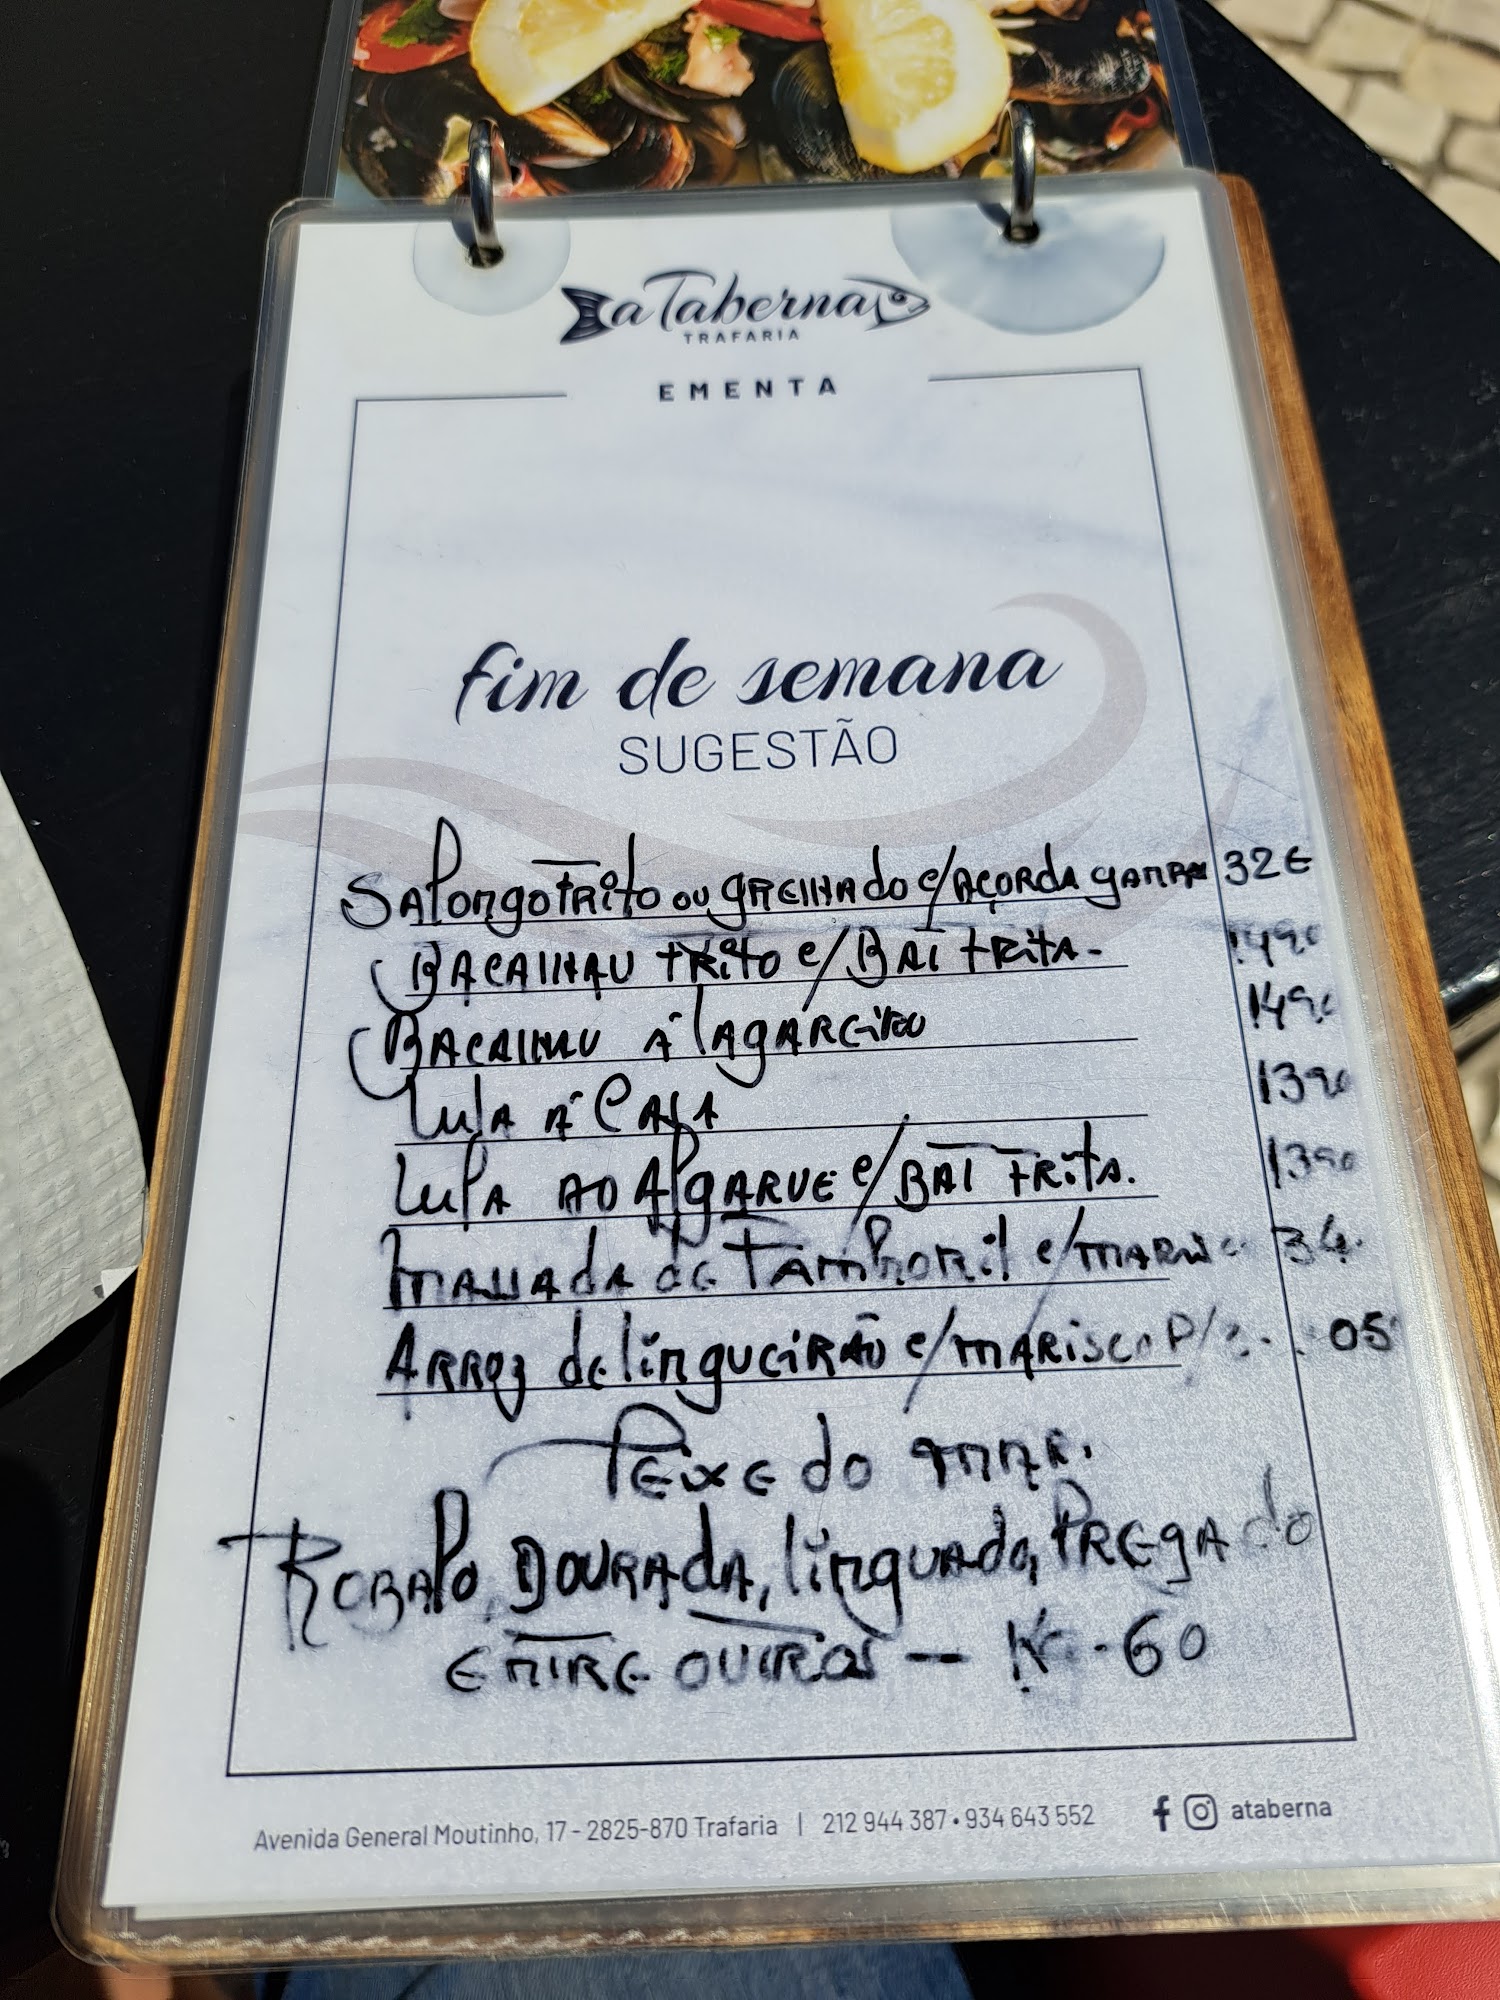 a Taberna
TRAFARIA
EMENTA
fim de semana
SUGESTÃO
SAPONGO FRITO OU GRELHADO C/AÇORDA GAMBA 32€
BACALHAU FRITO C/BAT FRITA - 1490
BACALHAU Á LAGAREIRO 1490
LULA Á CASA 1390
LULA AO ALGARVE C/BAT FRITA. 1390
MASSADA DE TAMBORIL C/MARIS 34.
ARROZ de lingueirão C/MARISCO P/
PEIXE do MAR.
ROBALO, DOURADA, linguado, PREGADO
ENTRE OUTROS - KG - 60
Avenida General Moutinho, 17 - 2825-870 Trafaria | 212 944 387 • 934 643 552 ataberna